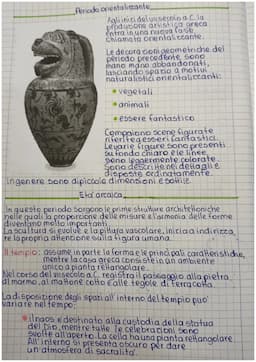 Periodo orientalizzante
Agli inizi del VII secolo a.C. la
produzione artistica greca
entra in una nuova fase
chiamata orientalizzante.
Le decorazioni geometriche del
periodo precedente sono
mano mano abbandonati,
lasciando spazio a motivi
naturalistici orientalizzanti:
• vegetali
• animali
• essere fantastico
Compaiono scene figurate
riferite a esseri fantastici.
Le varie figure sono presenti
su fondo chiaro e le linee
sono leggermente colorate.
Sono descritte nei dettagli e
disposte ordinatamente.
In genere sono di piccola dimensioni e sottile.
Età arcaica
In questo periodo sorgono le prime strutture architettoniche
nelle quali la proporzione delle misure e l'armonia delle forme
diventano molto importanti.
La scultura si evolve e la pittura vascolare, inizia a indirizza
re la propria attenzione sulla figura umana.
Il tempio: assume in parte la forma e le principali caratteristiche,
mentre la casa greca consiste in un ambiente
unico a pianta rettangolare.
Nel corso del VII secolo a.C. registra il passaggio alla pietra,
al marmo, al mattone cotto e alle tegole di terracotta.
La disposizione degli spazi all'interno del tempio può
variare nel tempo:
• il naos è destinato alla custodia della statua
del Dio, mentre tutte le celebrazioni sono
svolte all'aperto. La cella ha una pianta rettangolare.
All'interno si presenta oscuro per dare
un'atmosfera di sacralità.